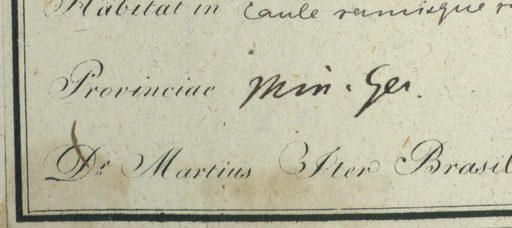 Habitat in caule ramisque
Provinciae Min. Ger.
Dr. Martius Iter Brasil